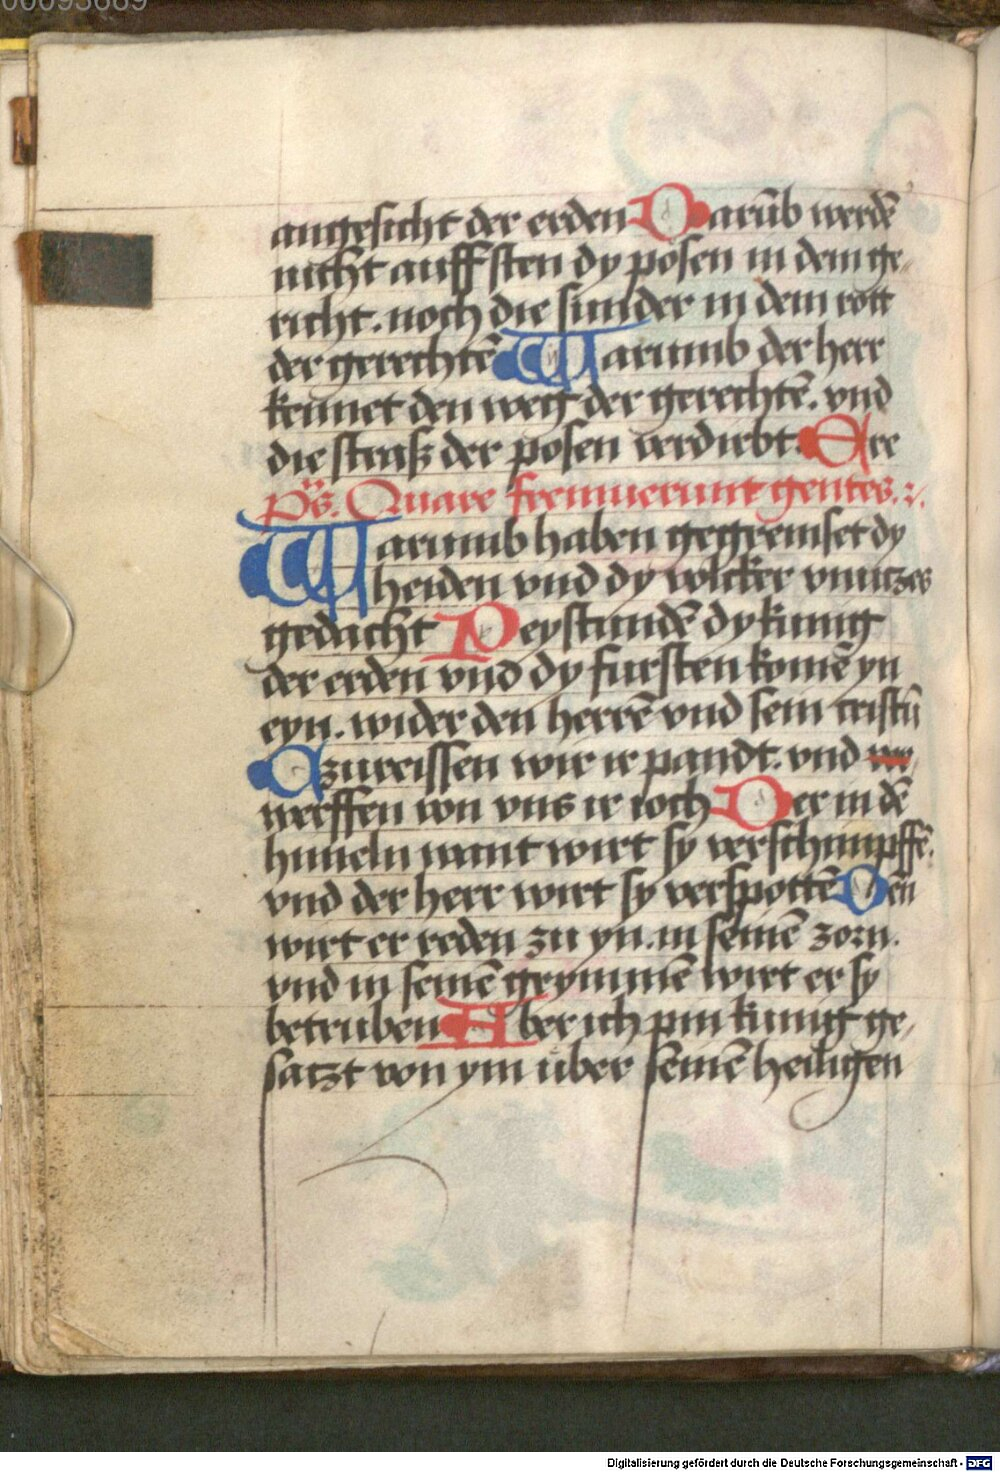 angesicht der erden Darūb werdē
nicht auffsten dy posen in dem ge-
richt. noch die sunder in dem rott
der gerechtē Warumb der herr
kennet den weg der gerechtē. vnd
die straß der posen verdirbt. Ere
ps. Quare fremuerunt gentes.
Warumb haben gegremset dy
heiden vnd dy volcker vnutzes
gedacht Peystundē dy kunig
der erden vnd dy fursten komē yn
eyn. wider den herrē vnd sein cristū
zureissen wir ir pandt. vnd
werffen von vns ir ioch Der in dē
himeln wont wirt sy verschimpffē.
vnd der herr wirt sy verspottē Den
wirt er reden zu yn. in seinē zorn.
vnd in seinē grymmē wirt er sy
betruben Aber ich pin kunig ge-
satzt von ym über seinē heiligen
Digitalisierung gefördert durch die Deutsche Forschungsgemeinschaft - DFG